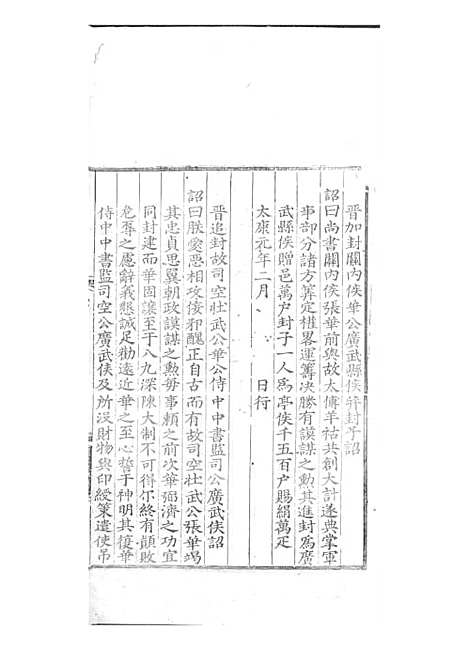 晉加封關內侯華公廣武縣侯并封子詔
詔曰尚書關內侯張華前與故太傅羊祜共創大計遂典掌軍
事部分諸方筭定權畧運籌决勝有謨謀之勲其進封爲廣
武縣侯贈邑萬戸封子一人爲亭侯千五百戸賜絹萬疋
太康元年二月 日行
晉追封故司空壯武公華公侍中中書監司公廣武侯詔
詔曰朕愛惡相攻佞邪醜正自古而有故司空壯武公張華竭
其忠貞思翼朝政謨謀之勲毎事頼之前次華弼濟之功宜
同封建而華固讓至于八九深陳大制不可得尓終有顛敗
危辱之慮辭義懇誠足勸遠近華之至心誓于神明其復華
侍中中書監司空公廣武侯及所没財物與印綬策遣使吊